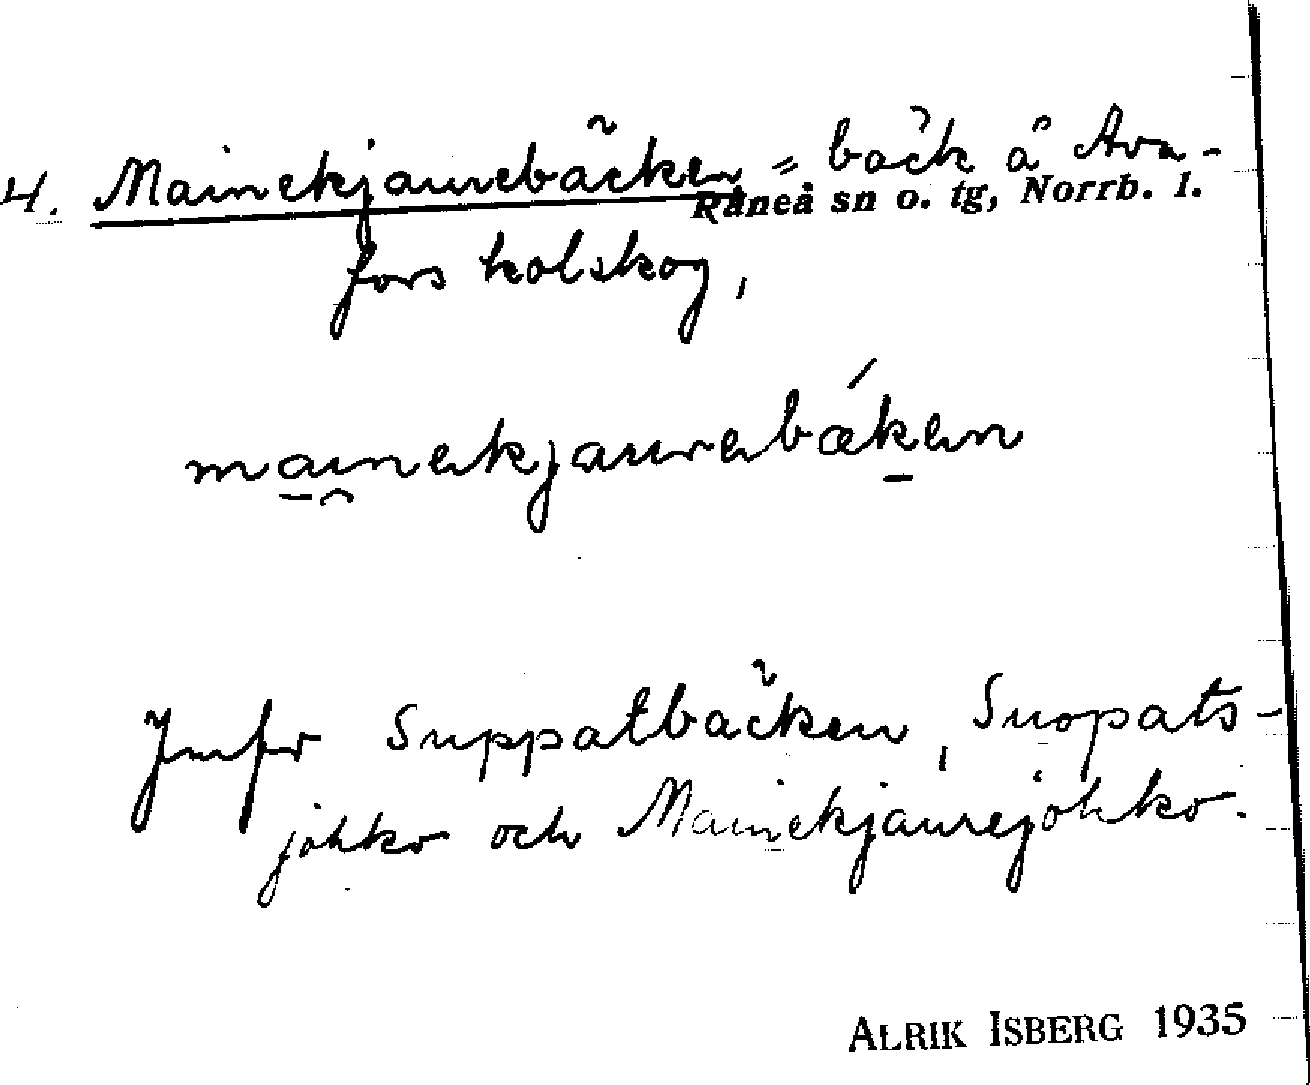 4. Mainekjaurebäcken = bäck å Ava-
Råneå sn o. tg, Norrb. l.
fors kolskog,
mainekjaurebæken
Jmfr Suppatbäcken, Suopats-
johko och Mainekjaurejohko.
ALRIK ISBERG 1935